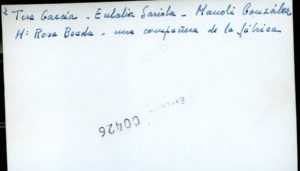 2 Tere García - Eulalia Sariola - Manoli González
Mª Rosa Boada - una compañera de la fábrica
00426